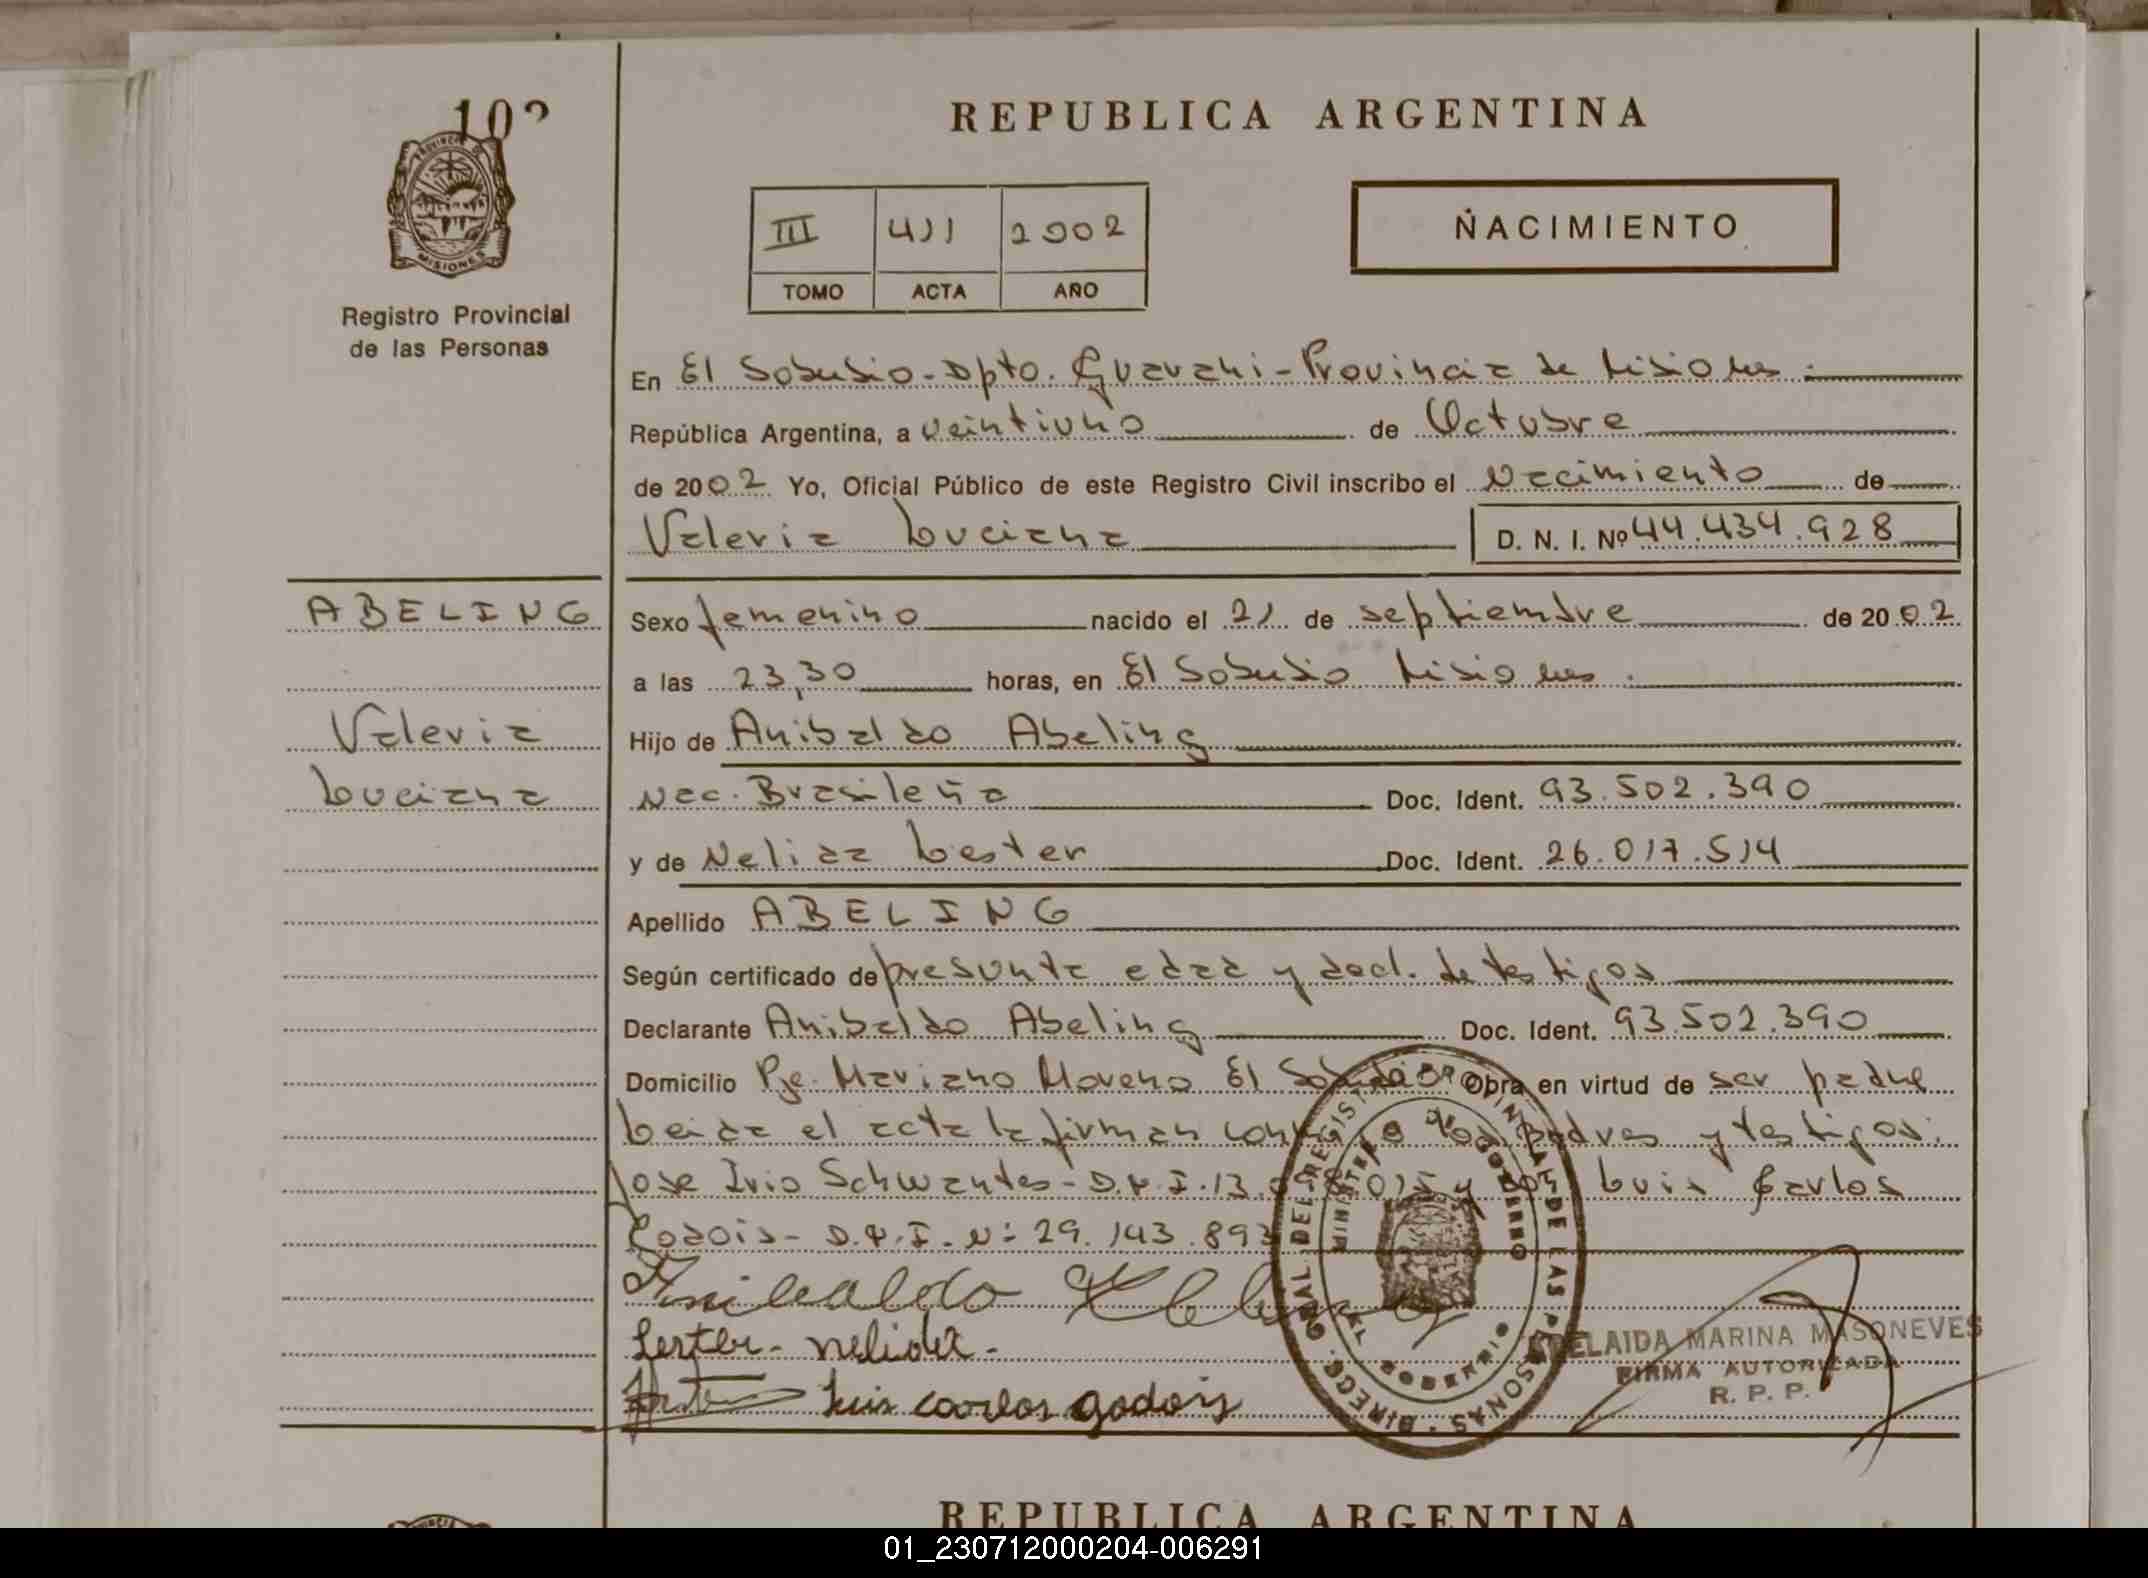 REPUBLICA ARGENTINA
PROVINCIA DE
MISIONES
Registro Provincial
de las Personas
III 411 2002
TOMO ACTA AÑO
NACIMIENTO
En El Soberbio - Dpto. Guarani - Provincia de Misiones
República Argentina, a veintiuno de Octubre
de 2002 Yo, Oficial Público de este Registro Civil inscribo el Nacimiento de
Valeria Luciana D. N. I. Nº 44.434.928
ABELING
Valeria
Luciana
Sexo femenino nacido el 21 de septiembre de 2002
a las 23,30 horas, en El Soberbio Misiones.
Hijo de Anibaldo Abeling
Nac. Brasileña Doc. Ident. 93.502.390
y de Nelida Lester Doc. Ident. 26.017.514
Apellido ABELING
Según certificado de presunta edad y decl. de testigos
Declarante Anibaldo Abeling Doc. Ident. 93.502.390
Domicilio Pje. Mariano Moreno El Soberbio Obra en virtud de ser padre
Leida el acta la firman conmigo los padres y testigos:
Jose Ivio Schwantes - D.N.I. 13. y Luis Carlos
Godois - D.N.I. Nº 29.143.893
Anibaldo Abeling
Lester - Nelida -
Luis Carlos godois
DIRECC. GRAL. DEL REGIST. PROVINCIAL DE LAS PERSONAS
MINISTERIO DE GOBIERNO
ADELAIDA MARINA MASONEVES
FIRMA AUTORIZADA
R. P. P.
REPUBLICA ARGENTINA
01_230712000204-006291